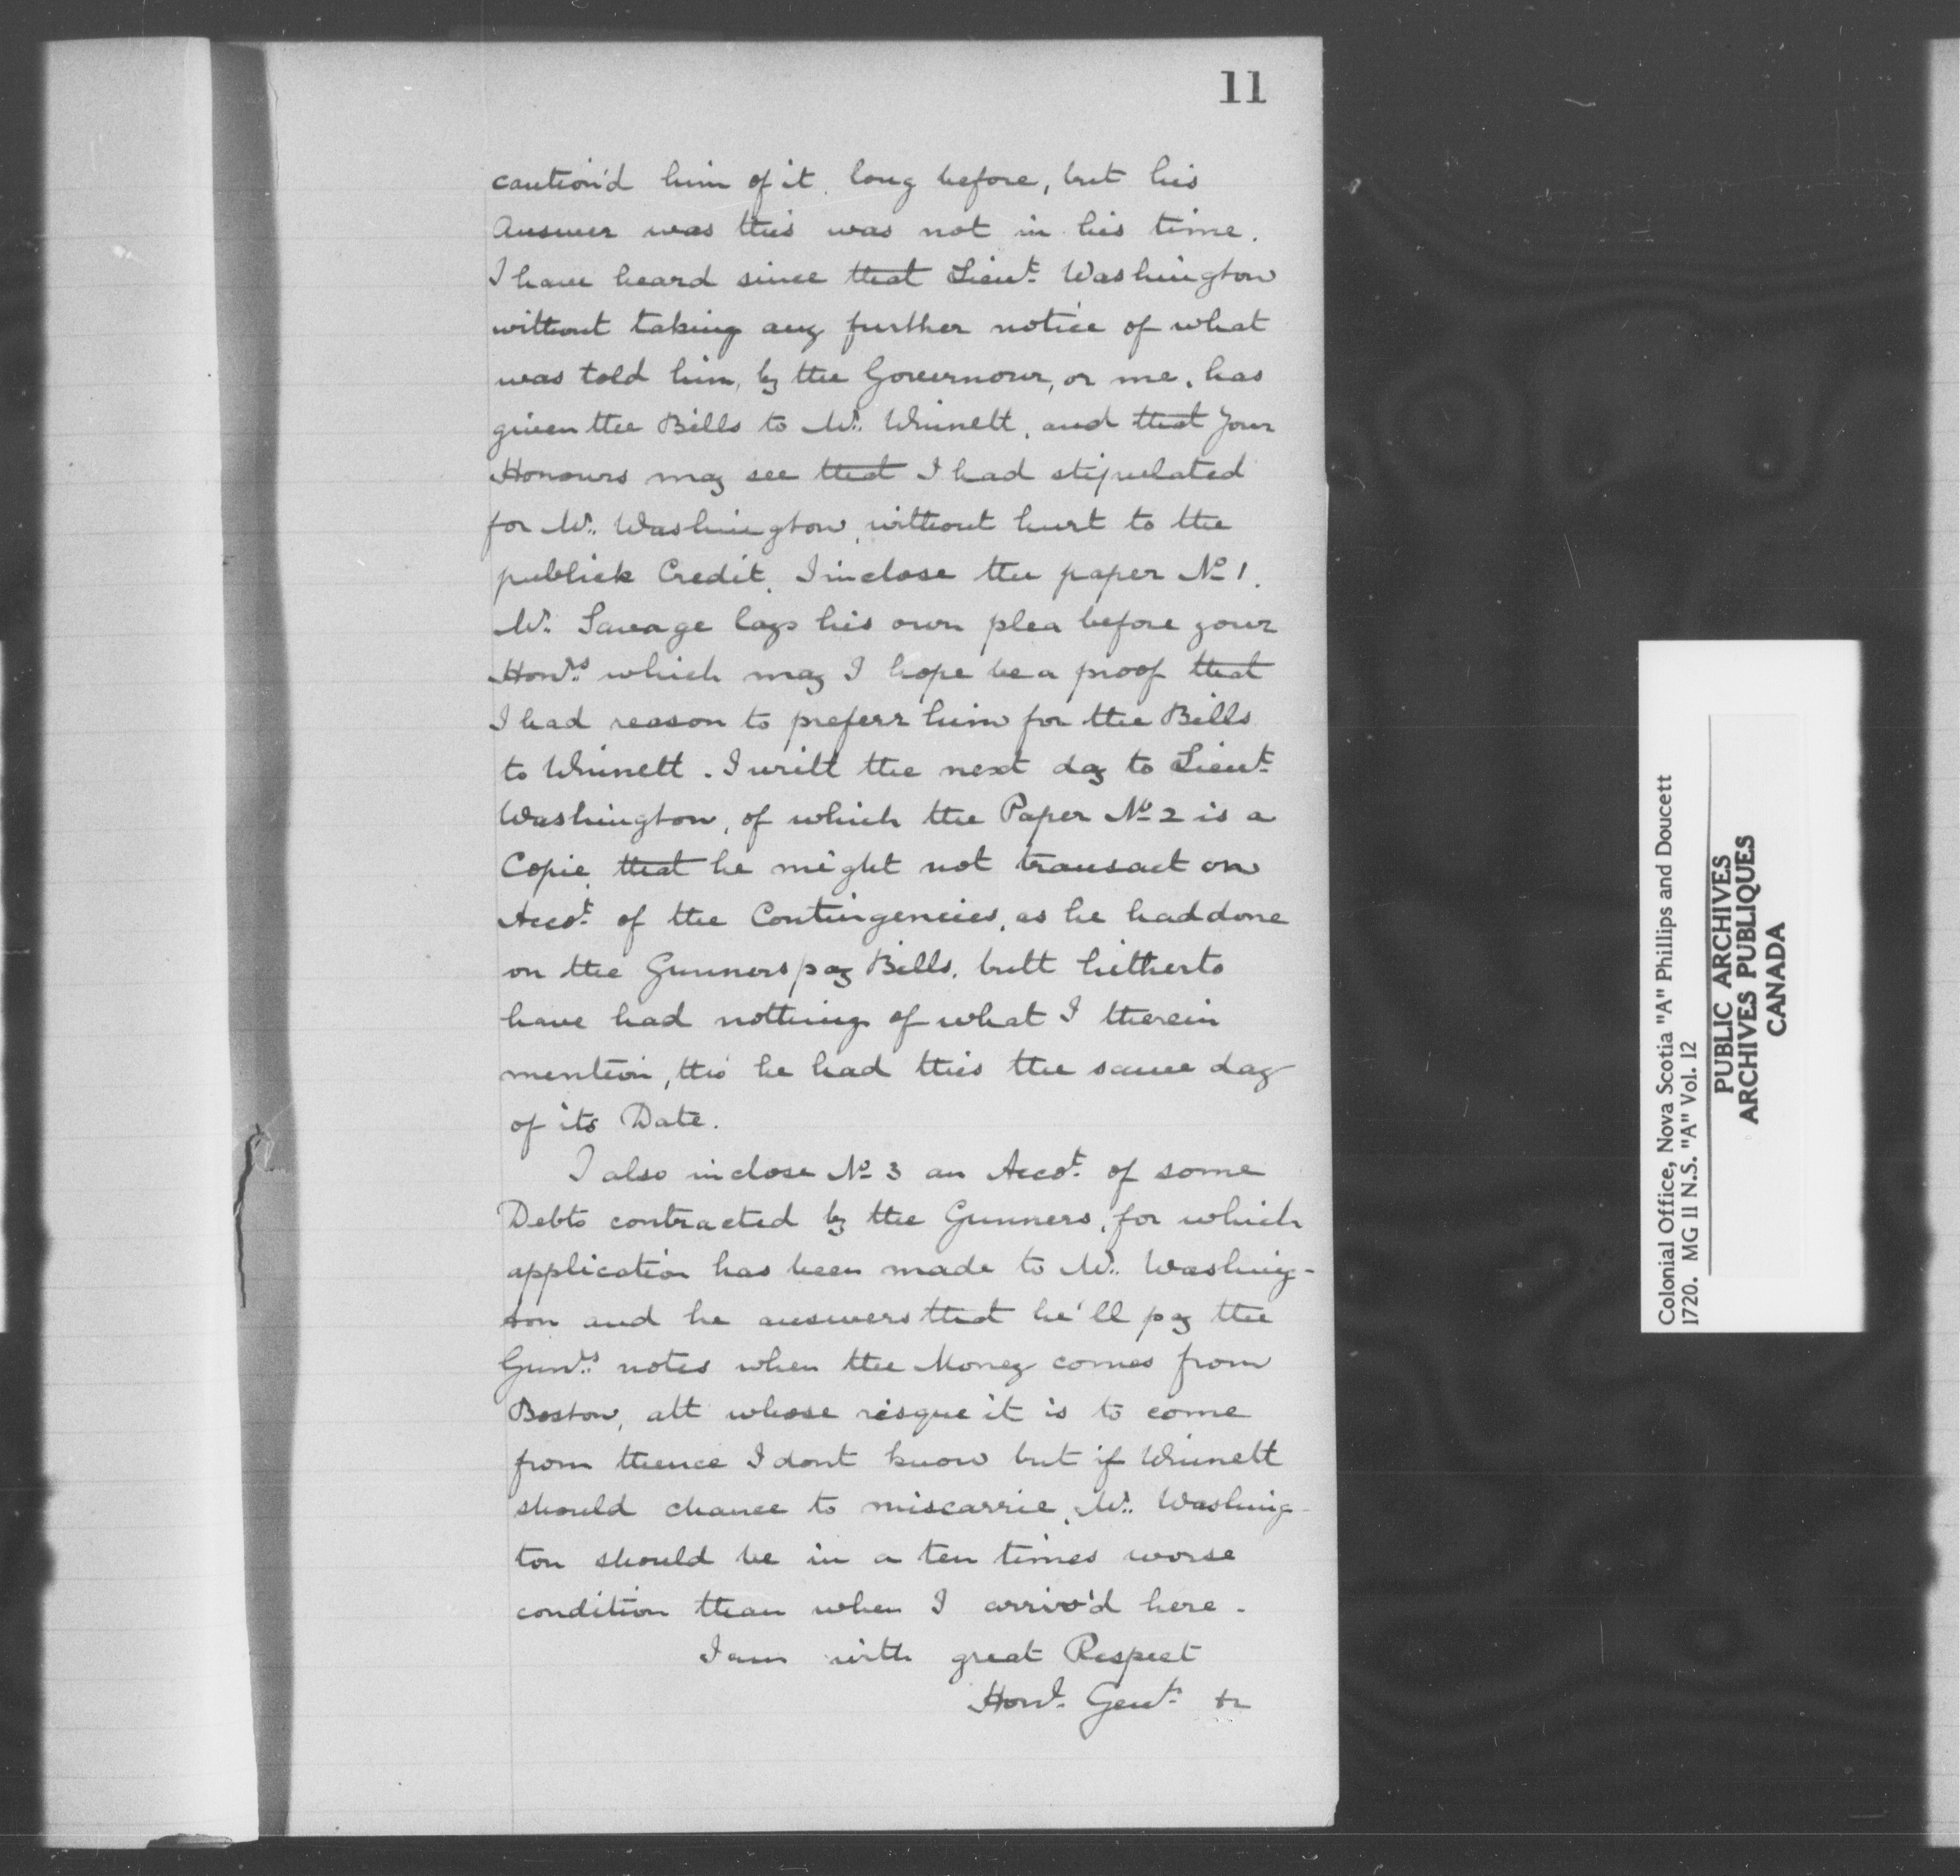 11
caution'd him of it, long before, but his
Answer was this was not in his time.
I have heard since that Lieut. Washington
without taking any further notice of what
was told him, by the Governour, or me, has
given the Bills to Mr. Winnett, and that your
Honours may see that I had stipulated
for Mr. Washington, without hurt to the
publick Credit, I inclose the paper No 1.
Mr. Savage lays his own plea before your
Honrs. which may I hope be a proof that
I had reason to preferr him for the Bills
to Winnett. I writt the next day to Lieut.
Washington, of which the Paper No 2 is a
Copie, that he might not transact on
Accot. of the Contingencies, as he had done
on the Gunners pay Bills, butt hitherto
have had nothing of what I therein
mention, tho' he had this the same day
of its Date.
I also inclose No 3 an Accot. of some
Debts contracted by the Gunners, for which
application has been made to Mr. Washing-
ton and he answers that he'll pay the
Gunrs. notes when the Money comes from
Boston, att whose risque it is to come
from thence I dont know but if Winnett
should chance to miscarrie, Mr. Washing-
ton should be in a ten times worse
condition than when I arriv'd here.
I am with great Respect
Hond. Gent. &c
Colonial Office, Nova Scotia "A" Phillips and Doucett
1720. MG 11 N.S. "A" Vol. 12
PUBLIC ARCHIVES
ARCHIVES PUBLIQUES
CANADA